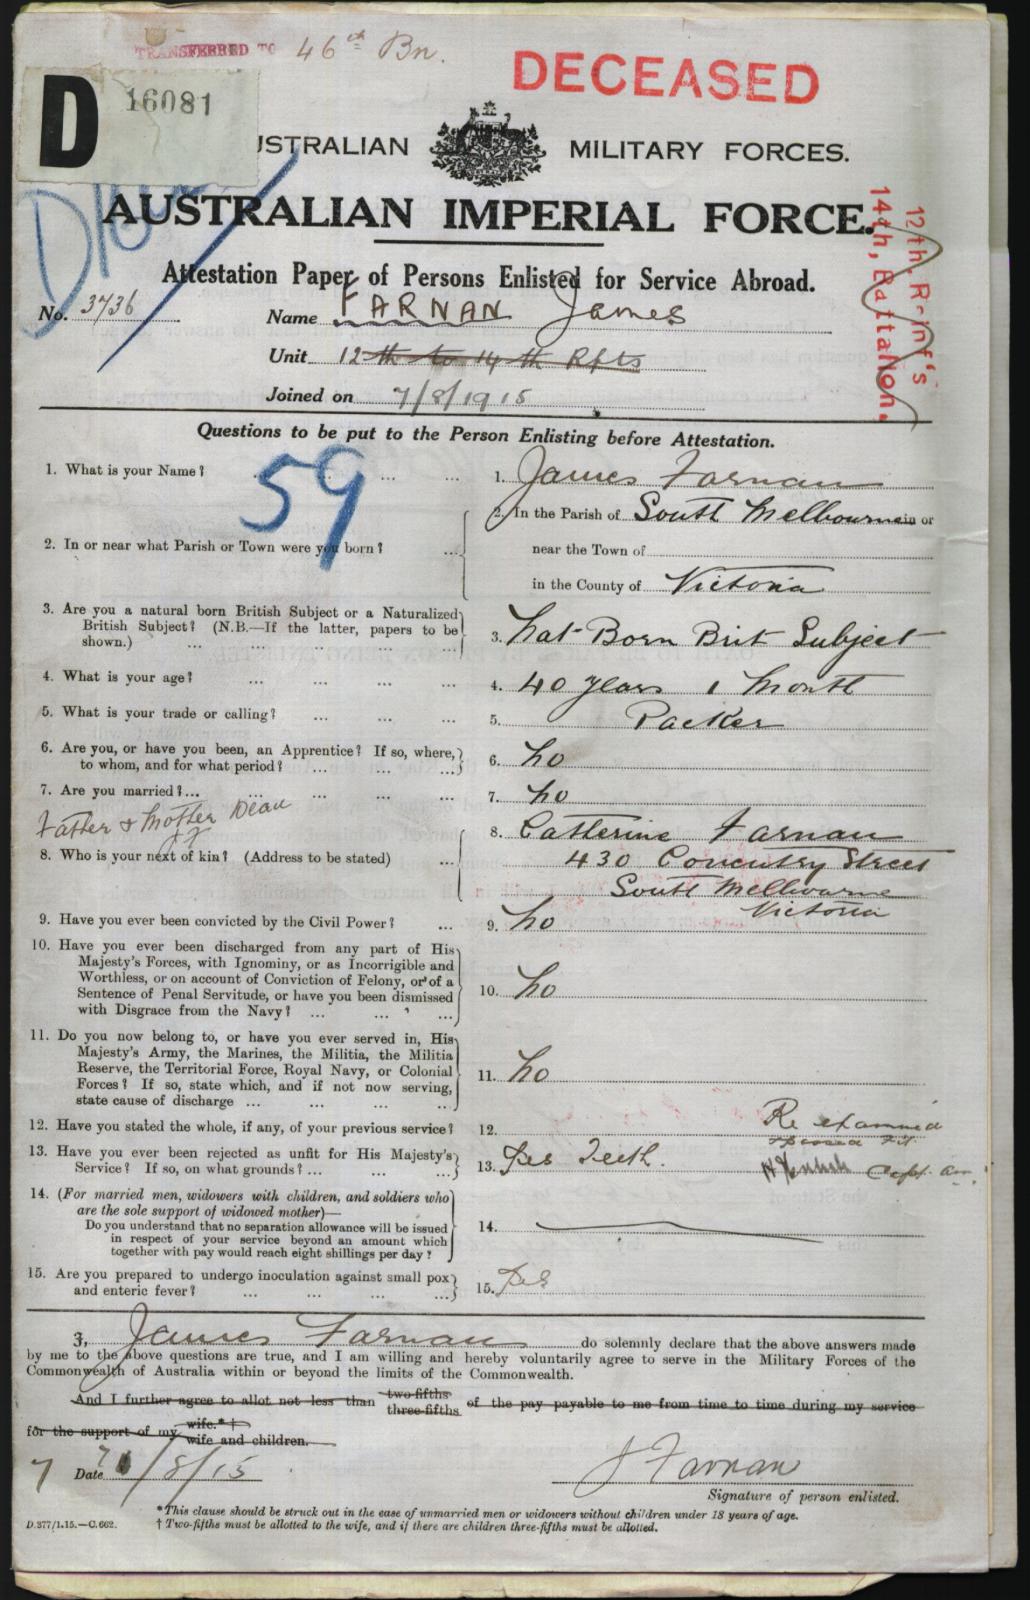 TRANSFERRED TO 46th Bn.
DECEASED
D 16081
USTRALIAN MILITARY FORCES.
AUSTRALIAN IMPERIAL FORCE.
12th, Reinf's
14th, Battalion.
Attestation Paper of Persons Enlisted for Service Abroad.
No. 3736 Name FARNAN James
Unit 12th to 14th Rfts
Joined on 7/8/1915
Questions to be put to the Person Enlisting before Attestation.
59
1. What is your Name? ... ... ... 1. James Farnan
2. In or near what Parish or Town were you born? ... 2. In the Parish of South Melbourne in or
near the Town of
in the County of Victoria
3. Are you a natural born British Subject or a Naturalized
British Subject? (N.B.—If the latter, papers to be
shown.) ... ... ... ... 3. Nat-Born Brit Subject
4. What is your age? ... ... ... 4. 40 years 1 Month
5. What is your trade or calling? ... ... ... 5. Packer
6. Are you, or have you been, an Apprentice? If so, where,
to whom, and for what period? ... ... ... 6. No
7. Are you married? ... ... ... ... 7. No
Father & Mother Dead
8. Who is your next of kin? (Address to be stated) ... 8. Catherine Farnan
430 Coventry Street
South Melbourne
Victoria
9. Have you ever been convicted by the Civil Power? ... 9. No
10. Have you ever been discharged from any part of His
Majesty's Forces, with Ignominy, or as Incorrigible and
Worthless, or on account of Conviction of Felony, or of a
Sentence of Penal Servitude, or have you been dismissed
with Disgrace from the Navy? ... ... ... 10. No
11. Do you now belong to, or have you ever served in, His
Majesty's Army, the Marines, the Militia, the Militia
Reserve, the Territorial Force, Royal Navy, or Colonial
Forces? If so, state which, and if not now serving,
state cause of discharge ... ... ... ... 11. No
12. Have you stated the whole, if any, of your previous service? 12.
Re examined
passed Fit
Capt
13. Have you ever been rejected as unfit for His Majesty's
Service? If so, on what grounds? ... ... ... 13. Yes Teeth.
14. (For married men, widowers with children, and soldiers who
are the sole support of widowed mother)—
Do you understand that no separation allowance will be issued
in respect of your service beyond an amount which
together with pay would reach eight shillings per day? 14.
15. Are you prepared to undergo inoculation against small pox
and enteric fever? ... ... ... ... 15. Yes
I, James Farnan do solemnly declare that the above answers made
by me to the above questions are true, and I am willing and hereby voluntarily agree to serve in the Military Forces of the
Commonwealth of Australia within or beyond the limits of the Commonwealth.
And I further agree to allot not less than two-fifths three-fifths of the pay payable to me from time to time during my service
for the support of my wife.*† wife and children.
7 Date /8/15
J Farnan
Signature of person enlisted.
*This clause should be struck out in the case of unmarried men or widowers without children under 18 years of age.
D.377/1.15.—C.662. † Two-fifths must be allotted to the wife, and if there are children three-fifths must be allotted.